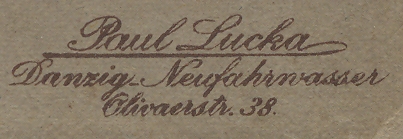 Paul Lucka
Danzig-Neufahrwasser
Olivaerstr. 38.